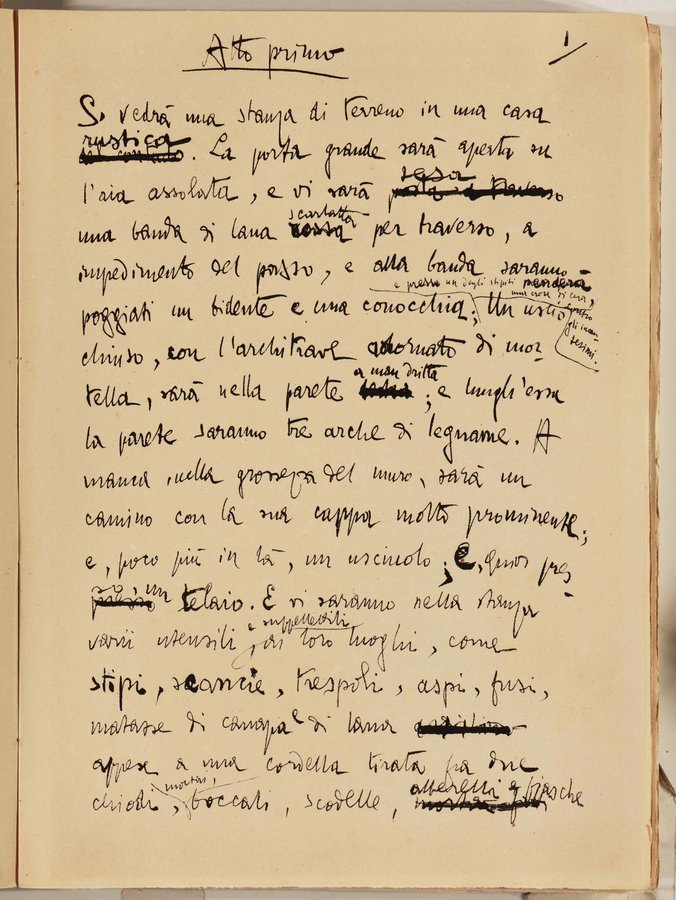 Atto primo
1
Si vedrà una stanza di terreno in una casa
rustica
. La porta grande sarà aperta su
l'aia assolata, e vi sarà tesa
una banda di lana scarlatta per traverso, a
impedimento del passo, e alla banda saranno
e presso un degli stipiti una croce di cera, contro
poggiati un bidente e una conocchia; Un uscio
chiuso, con l'architrave adornato di mor-
tella, sarà nella parete a man dritta; e lungh'essa
la parete saranno tre arche di legname. A
manca, nella grossezza del muro, sarà un
camino con la sua cappa molto prominente;
e, poco più in là, un usciuolo; e, quasi pres-
so, un telaio. E vi saranno nella stanza
varii utensili e suppellettili, ai loro luoghi, come
stipi, scancie, trespoli, aspi, fusi,
matasse di canapa e di lana
appese a una cordella tirata fra due
chiodi, mortai, boccali, scodelle, alberelli e fiasche